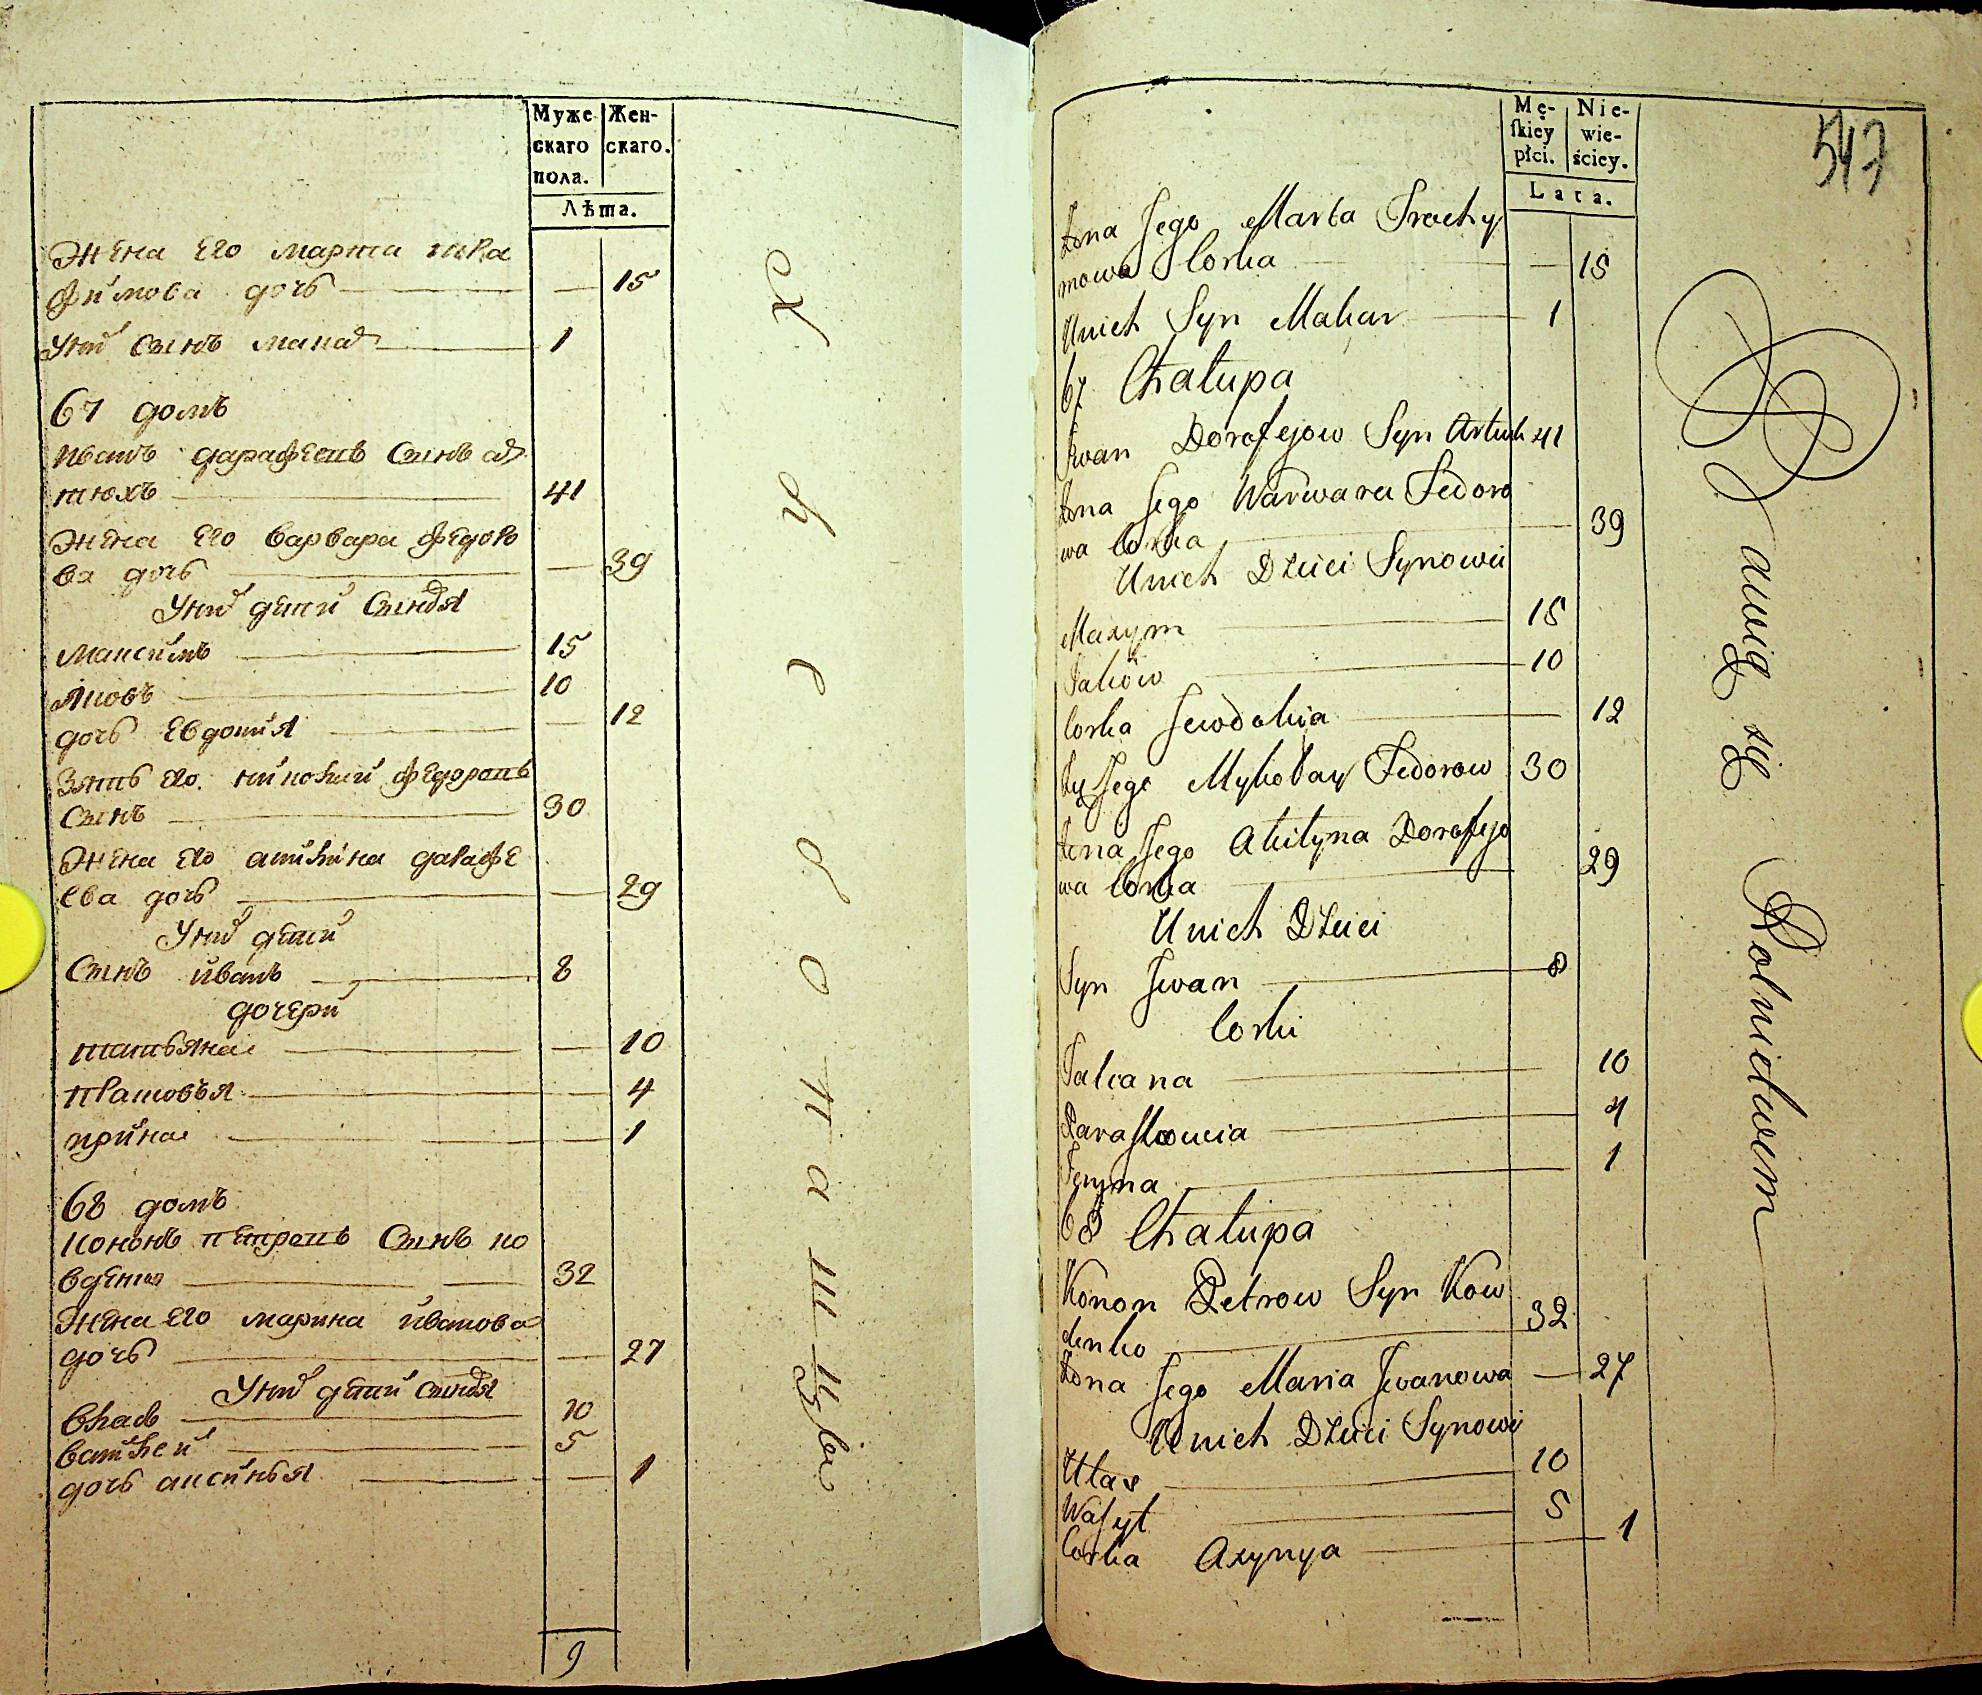 Муже
скаго
пола.
Жен-
скаго.
Лѣта.
жена его марта тра
фимова дочь 15
у ниⷯ сынъ макаⷬ 1
67 домъ
иванъ дарафеевъ сынъ аⷬ
тюхъ 41
жена его варвара федоро
ва дочь 39
у ниⷯ дети сыновⷽя
максимъ 15
яковъ 10
дочь евдокия 12
зять его николай федоровъ
сынъ 30
жена его акилина дарафе
ева дочь 29
у ниⷯ дети
сынъ иванъ 8
дочери
татьяна 10
прасковья 4
ирина 1
68 домъ
кононъ петровъ сынъ ко
вденко 32
жена его марина иванова
дочь 27
у ниⷯ дети сыновⷽя
власъ 10
василей 5
дочь аксинья 1
9
Mę-
ſkiey
płci.
Nie-
wie-
ściey.
Lata.
547
Żona Jego Marta Trochy
mowa Corka 15
Unich Syn Makar 1
67 Chałupa
Jwan Dorofejow Syn Artiuh 41
Żona Jego Warwara Fedoro
wa Corka 39
Unich Dzieci Synowie
Maxym 15
Jakow 10
Corka Jewdokia 12
Zięć Jego Mykołay Fedorow 30
Żona Jego Akilyna Dorofejo
wa Corka 29
Unich Dzieci
Syn Jwan 8
Corki
Tatiana 10
Paraſkowia 4
Jeryna 1
68 Chałupa
Konon Petrow Syn Kow
denko 32
Żona Jego Maria Jwanowa 27
Unich Dzieci Synowi
Ułas 10
Waſyl 5
Corka Axynya 1
Bawią się Rolnictwem